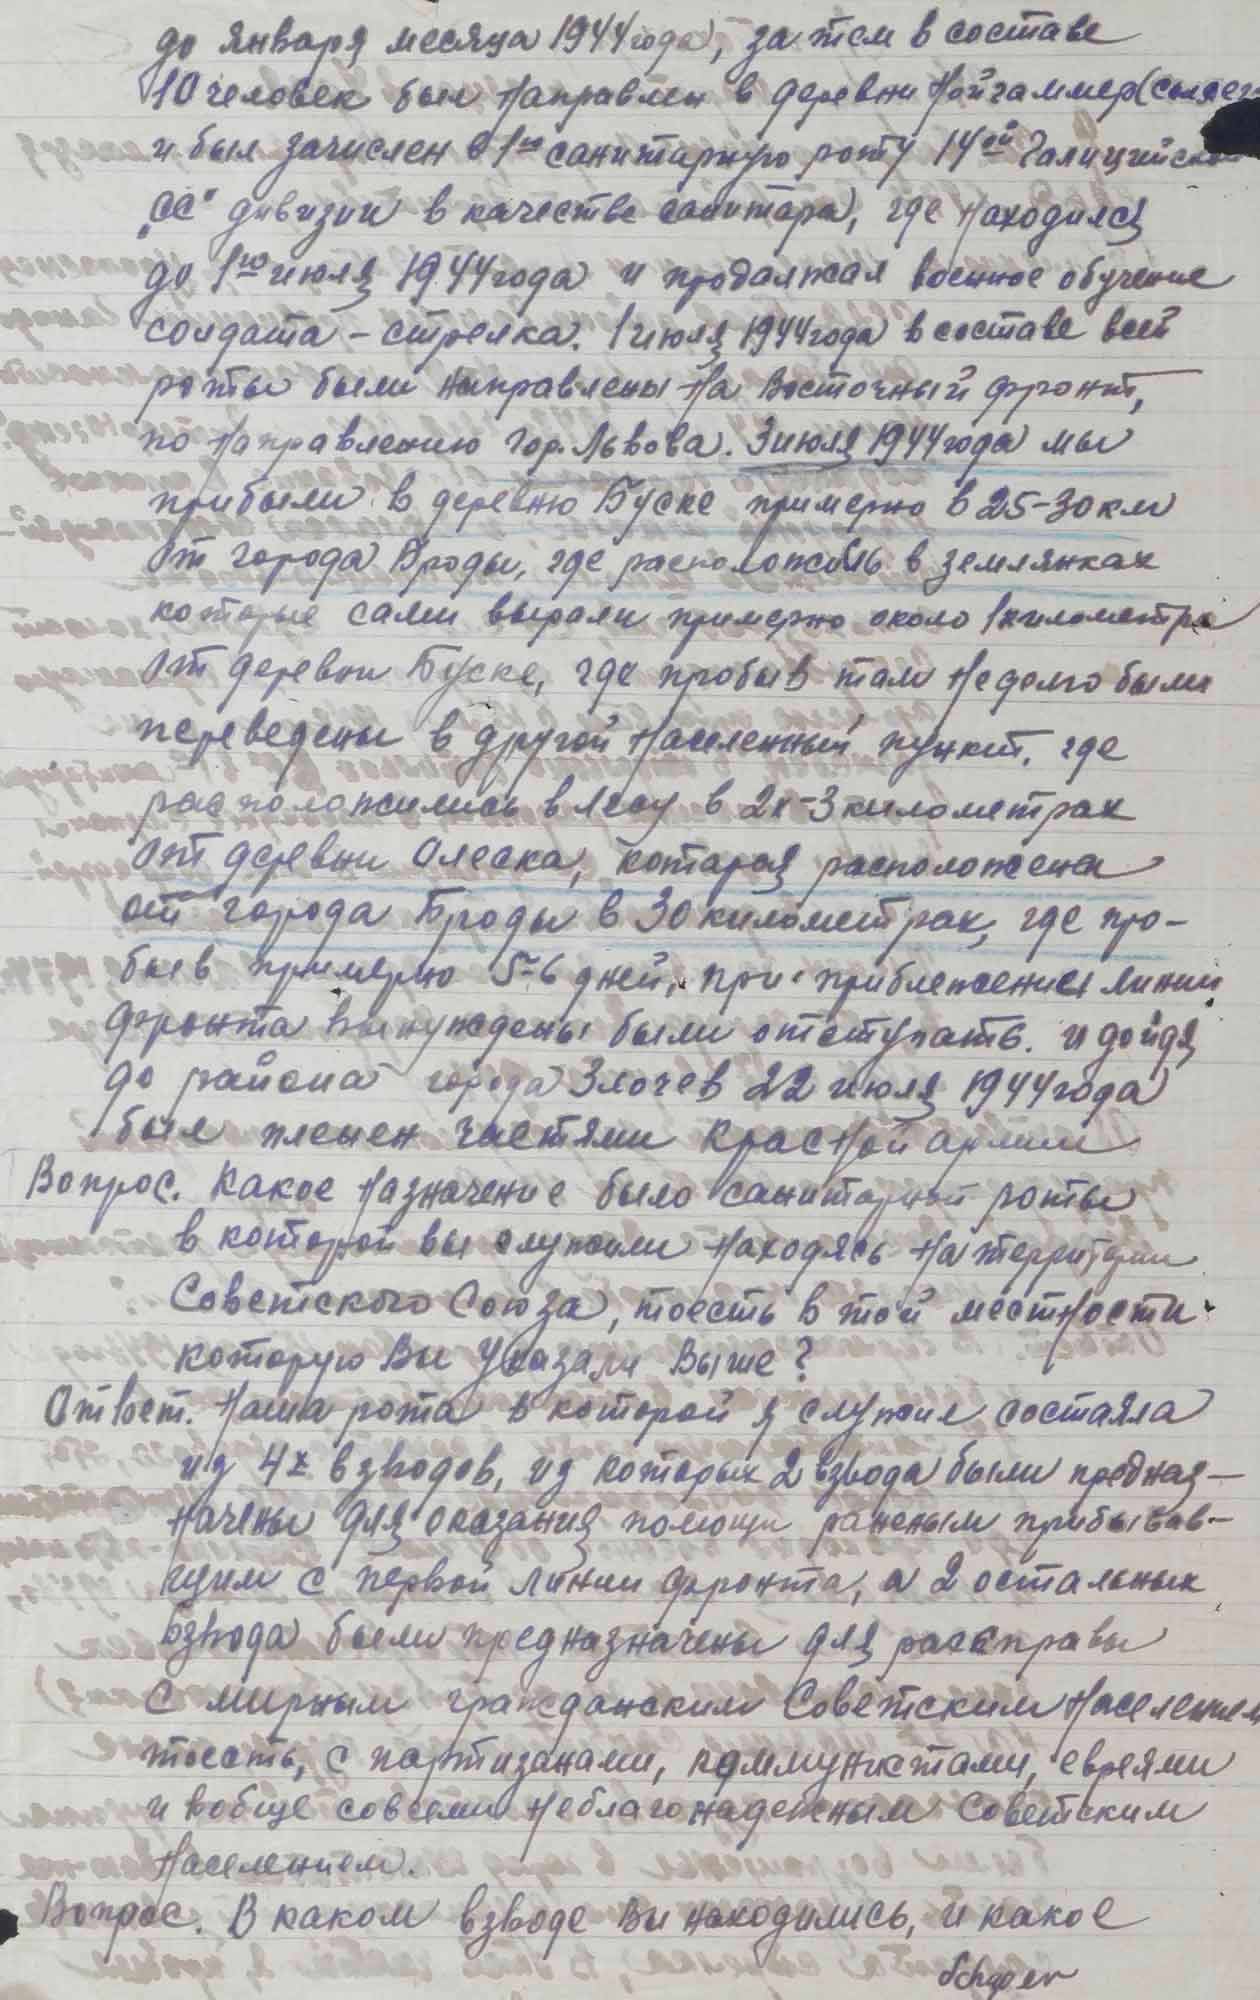 до января месяца 1944 года, за тем в составе
10 человек был направлен в деревни Нойгаммер
и был зачислен в 1ую санитарную роту 14ой Галицийской
„СС" дивизии в качестве санитара, где находился
до 1го июля 1944 года и продалжал военное обучение
солдата – стрелка. 1 июля 1944 года в составе всей
роты были направлены на Восточный фронт,
по направлению гор. Львова. 3 июля 1944 года мы
прибыли в деревню Буске примерно в 25-30 км
от города Броды, где расположись в землянках
которые сами вырали примерно около 1 километра
от деревни Буске, где пробыв там недолго были
переведены в другой населенный пункт, где
расположились в лесу в 2х-3 километрах
от деревни Олеска, котарая расположена
от города Броды в 30 километрах, где про-
быв примерно 5-6 дней, при приближении линии
фронта вынуждены были отступать. и дойдя
до района города Злочев 22 июля 1944 года
был пленен частями Красной армии
Вопрос. Какое назначение было санитарной роты
в которой вы служили находясь на территории
Советского Союза, тоесть в той местности
которую Вы указали выше?
Ответ. Наша рота в которой я служил состаяла
из 4х взводов, из которых 2 взвода были предназ-
начены для оказания помощи раненым прибывав-
щим с первой линии фронта, а 2 остальных
взвода были предназначены для расправы
с мирным гражданским Советским населением
тоесть, с партизанами, коммунистами, евреями
и вобще совсеми неблагонадежным Советским
населением.
Вопрос. В каком взводе Вы находились, и какое